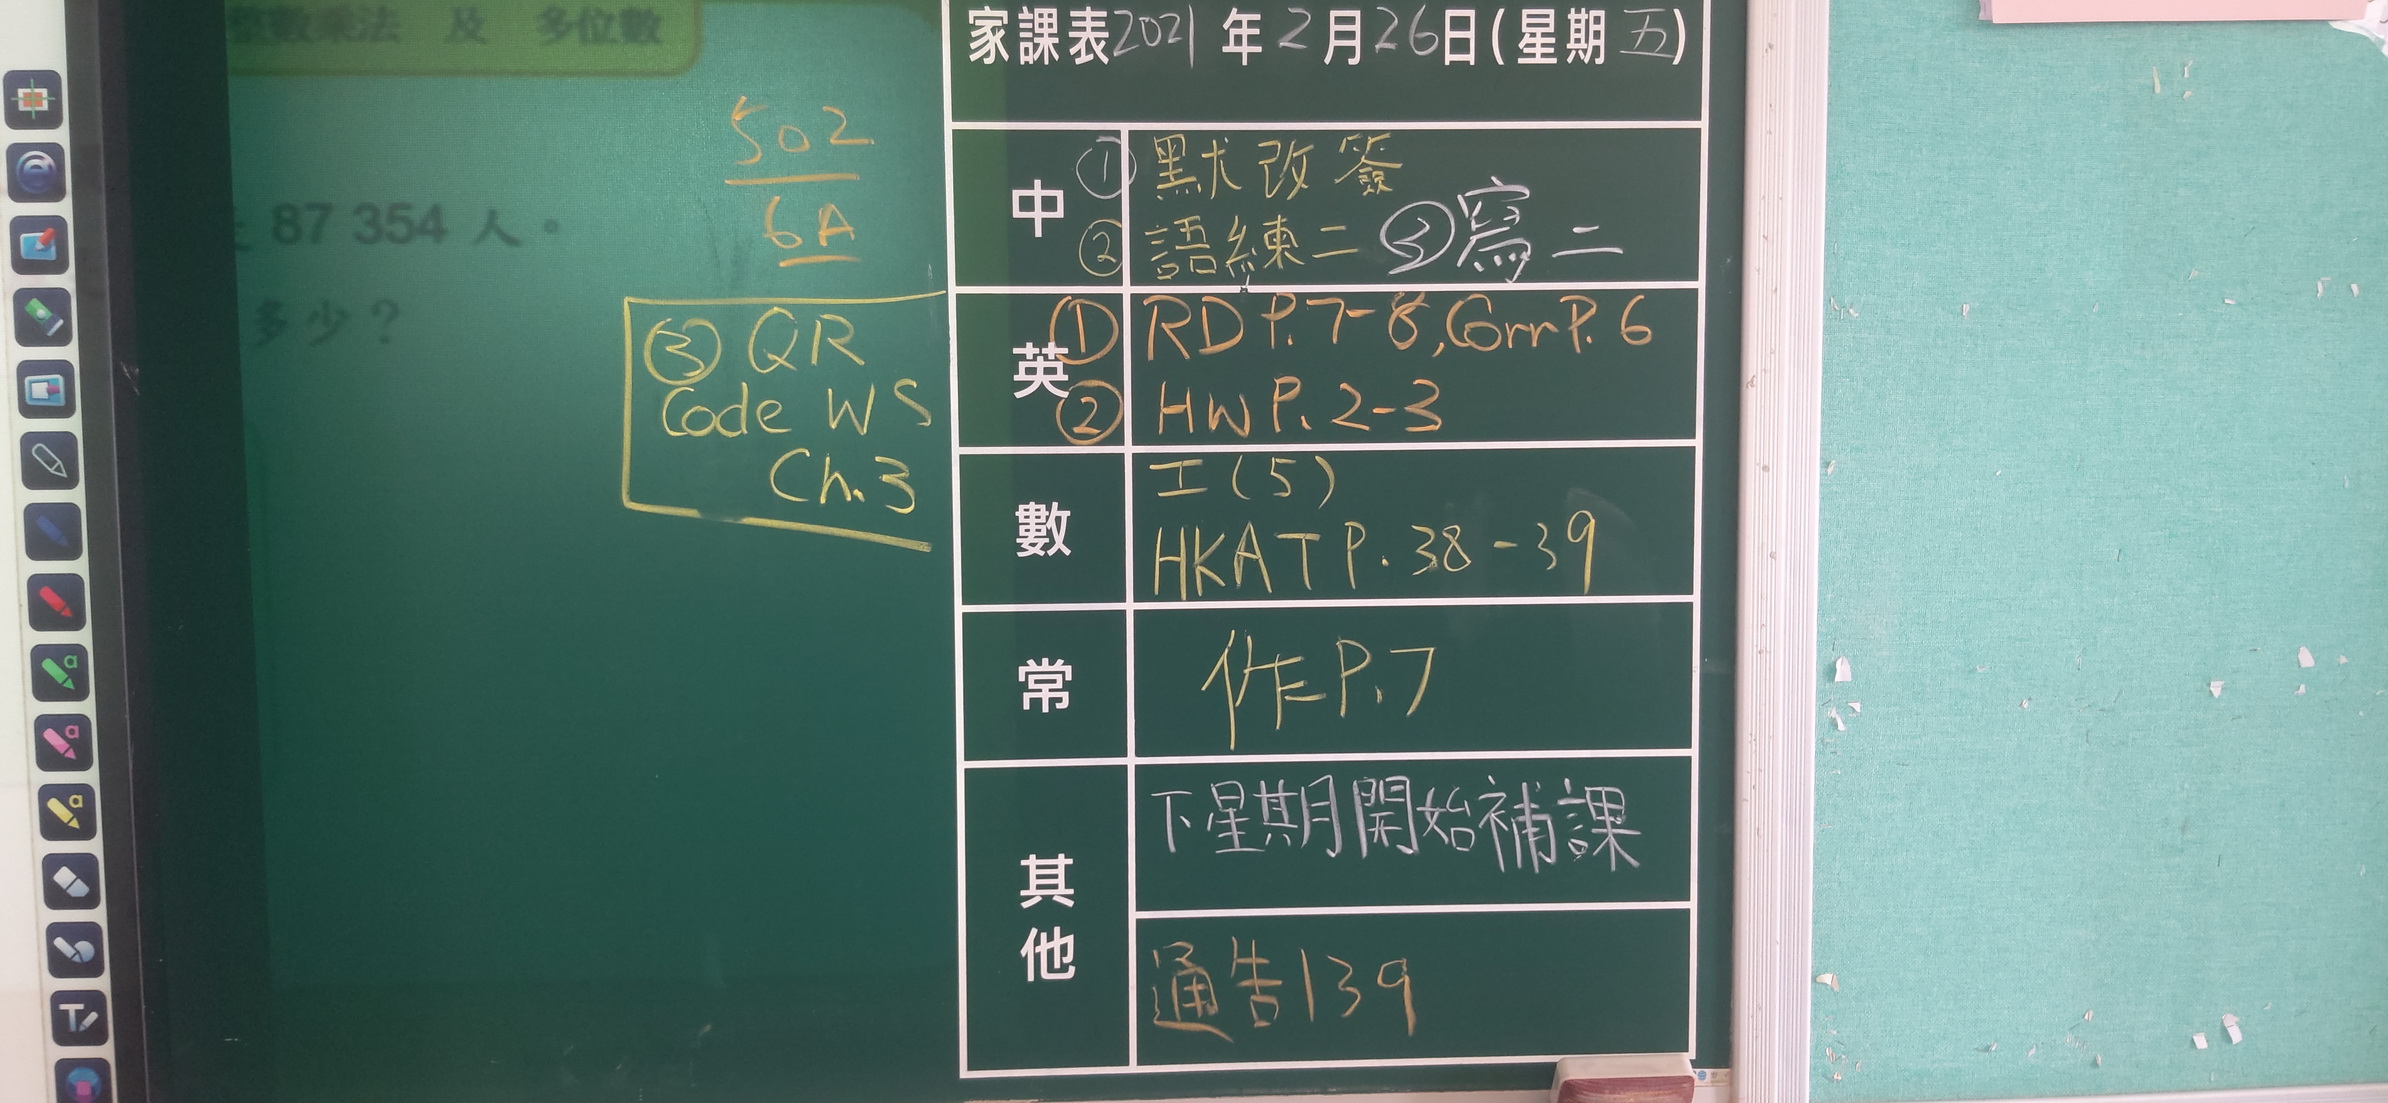 整數乘法 及 多位數
87 354 人。
多少？
502
6A
③ QR
Code WS
Ch.3
家課表2021年2月26日(星期五)
中
① 默改簽
② 語練二 ③寫二
英
① RD P.7-8, Corr P.6
② HW P.2-3
數
工(5)
HKAT P.38-39
常
作P.7
其他
下星期開始補課
通告139